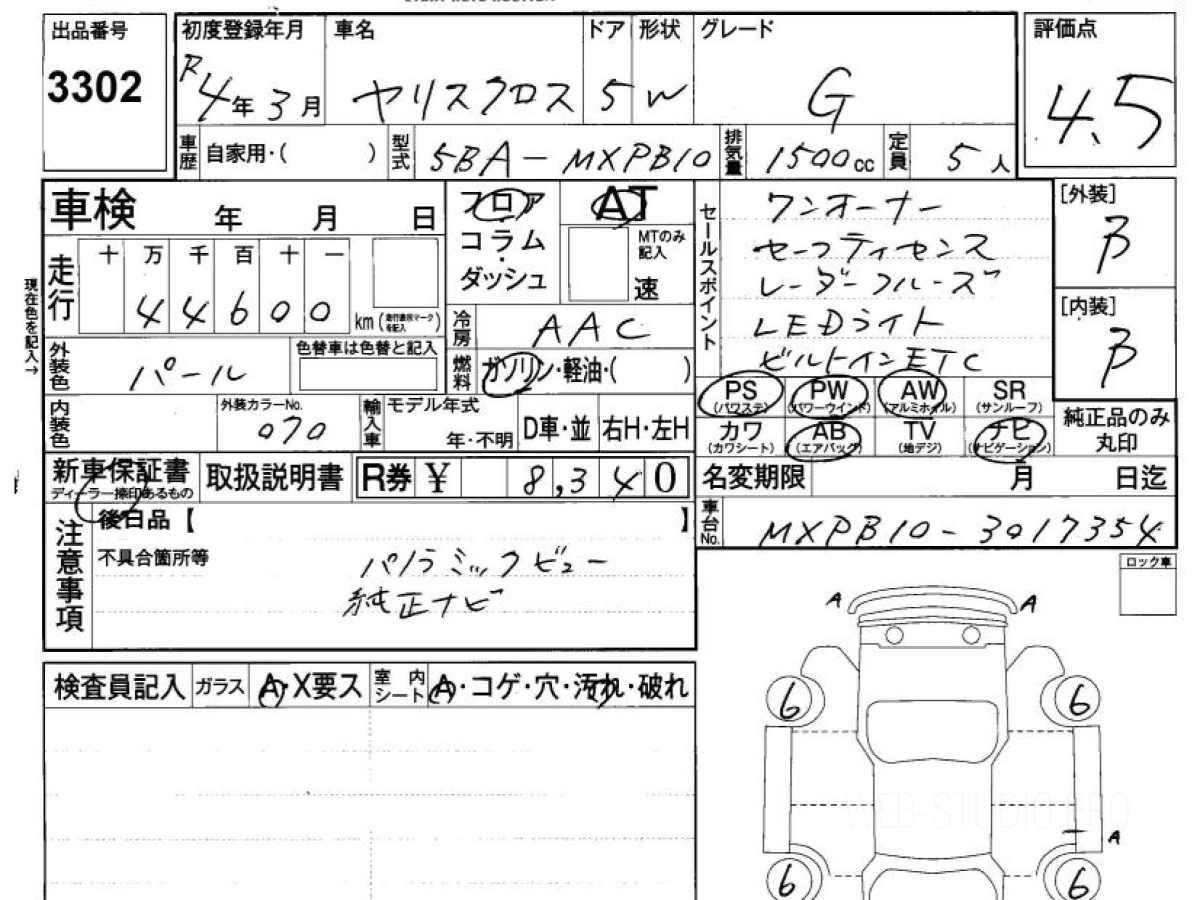 出品番号
3302
初度登録年月
R4年3月
車名
ヤリスクロス
ドア
5
形状
W
グレード
G
評価点
4.5
車歴
自家用・( )
型式
5BA-MXPB10
排気量
1500cc
定員
5人
車検 年 月 日
フロア
コラム
ダッシュ
AT
MTのみ記入
速
セールスポイント
ワンオーナー
セーフティセンス
レーダークルーズ
LEDライト
ビルトインETC
[外装]
B
[内装]
B
現在色を記入→
走行
十 万 千 百 十 一
44600
km(走行表示マークを記入)
冷房
AAC
外装色
パール
色替車は色替と記入
燃料
ガソリン・軽油・( )
PS
(パワステ)
PW
(パワーウインド)
AW
(アルミホイル)
SR
(サンルーフ)
カワ
(カワシート)
AB
(エアバッグ)
TV
(地デジ)
ナビ
(ナビゲーション)
純正品のみ
丸印
内装色
外装カラーNo.
070
輸入車
モデル年式
年・不明
D車・並
右H・左H
新車保証書
ディーラー捺印あるもの
取扱説明書
R券 ¥ 8,340
名変期限 月 日迄
車台No.
MXPB10-3017354
注意事項
後日品【 】
不具合箇所等
パノラミックビュー
純正ナビ
ロック車
検査員記入
ガラス
A・X要ス
室内シート
A・コゲ・穴・汚れ・破れ
A A
6 6
A
6 6
WEB-STUDIO.PRO